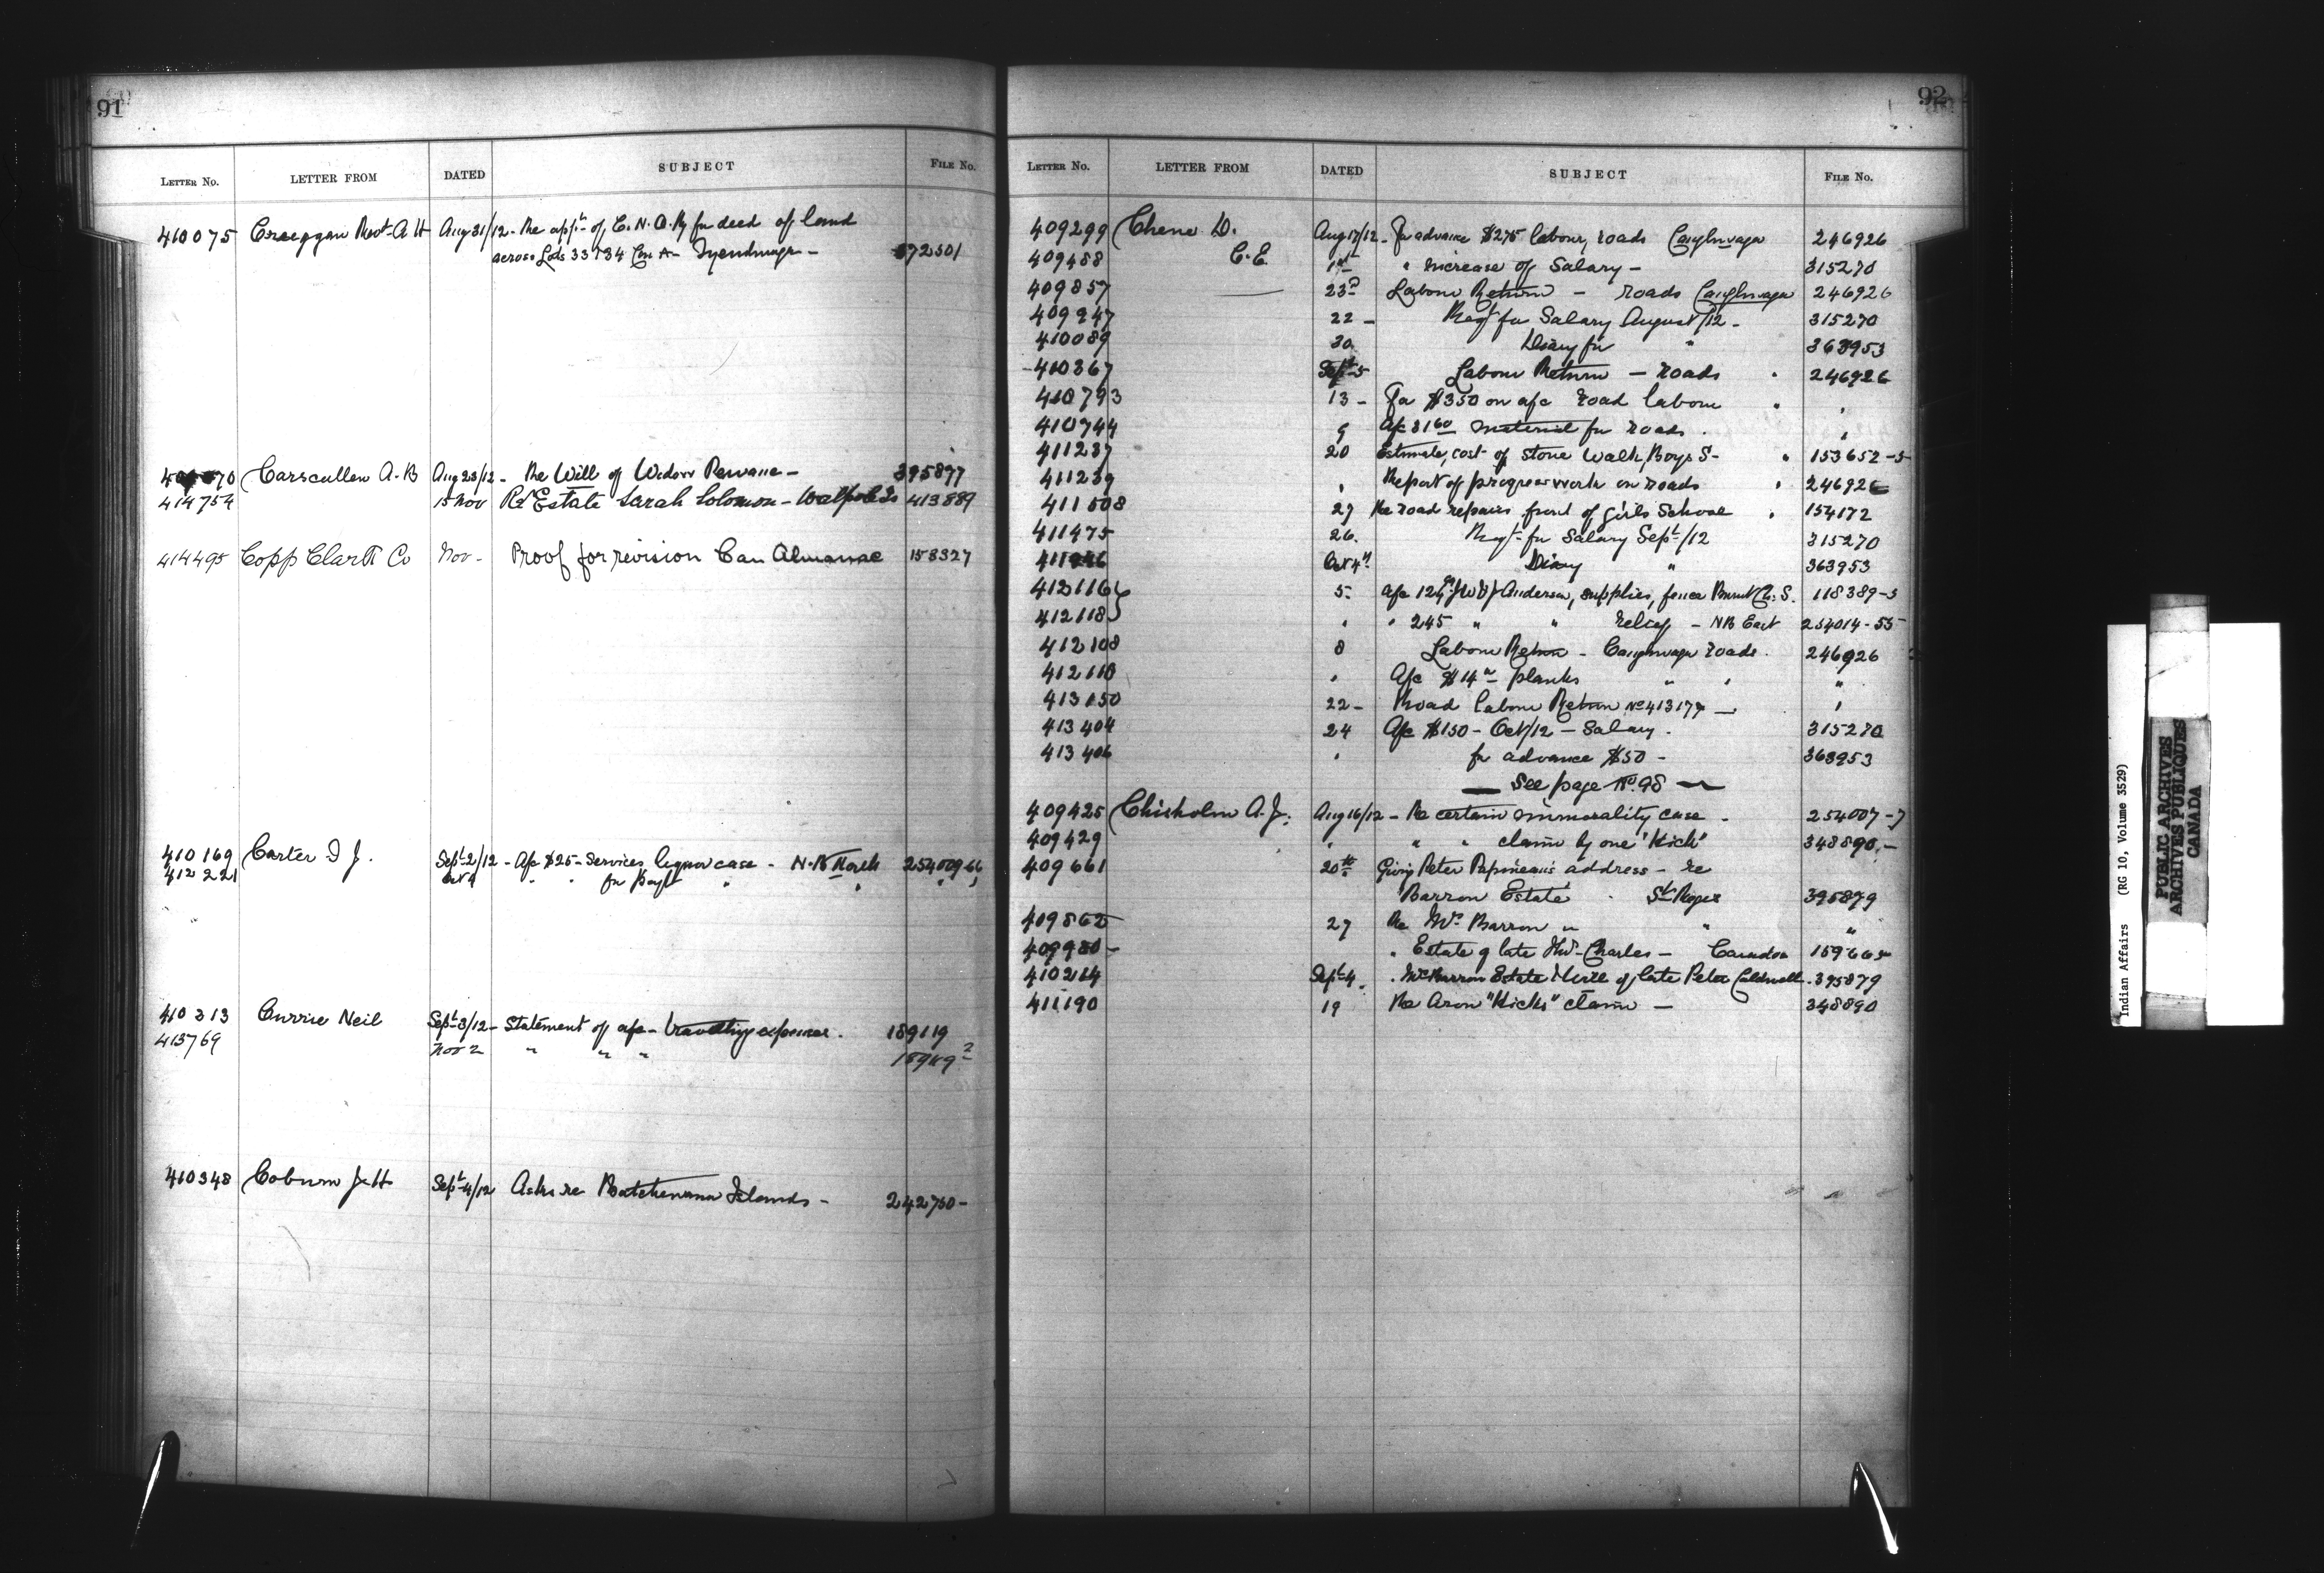 91
LETTER No. LETTER FROM DATED SUBJECT FILE No.
410075 Creeggan Revd A H Aug 31/12 - Re appn of C.N.O.Ry for deed of land
across Lots 33 & 34 Con A - Tyendinaga - 372501
70 Carscallen A.B Aug 23/12 - Re Will of Widow - 395897
414754 15 Nov Re Estate Sarah Solomon - Walpole Is 413889
414495 Copp Clark Co Nov - Proof for revision Can Almanac 158327
410169 Carter I J. Sept 2/12 - A/c $25 - Services liquor case - N.B North 254009-66
412221 Oct 9 " " for Payt " " "
410313 Currie Neil Sept 3/12 - Statement of a/c - travelling expenses. 189119
413769 Nov 2 " " " 189119-2
410348 Coburn J.H Sept 4/12 Asks re Batchewana Islands - 242760 -
92
LETTER No. LETTER FROM DATED SUBJECT FILE No.
409299 Chene D. Aug 17/12 - For advance $275 labour, roads Caughnawaga 246926
409488 C.E. " increase of Salary - 315270
409857 23d Labour Return - roads Caughnawaga 246926
409947 22 - Reqt for Salary August/12 - 315270
410089 30 Diary for " 363953
410367 Sept 5 Labour Return - roads " 246926
410793 13 - For $350 on a/c road labour " "
410744 9 A/c 3160 material for roads. "
411237 20 Estimate, cost of stone walk, Boys S- " 153652-5
411239 " Report of progress work on roads " 246926
411508 27 Re road repairs front of girls School " 154172
411475 26. Reqt for Salary Sept/12 315270
Oct 4th Diary " 363953
412116 5- A/c Anderson, supplies, fence Burnt Ch. S. 118389-5
412118 " " 245 " " relief - NB East 254014-55
412108 8 Labour Return - Caughnawaga roads. 246926
412110 " A/c $14 planks " " "
413150 22 - Road labour Return No 413177 - "
413404 24 A/c $150 - Oct/12 - Salary. 315270
413406 " for advance $50 - 363953
See page No. 98
409425 Chisholm A.J. Aug 16/12 - Re certain immorality case - 254007-7
409429 " " " claim by one "Hicks" 348890 -
409661 20th Giving Peter Papineau's address - re
Barron Estate - St Regis 395879
409862 27 Re Mrs Barron " " "
409980 - " Estate of late Thos Charles - 159665
410214 Sept 4. " Mrs Barron Estate & Will of late Peter Caldwell. 395879
411190 19 Re Aron "Hicks" claim - 348890
Indian Affairs (RG 10, Volume 3529)
PUBLIC ARCHIVES
ARCHIVES PUBLIQUES
CANADA